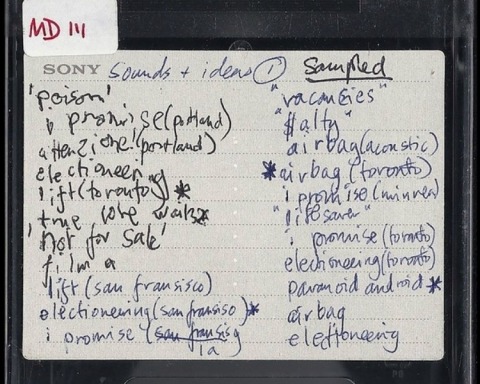 MD 111
SONY Sounds + ideas ① Sampled
'poison'
i promise (portland)
attenzione! (portland)
electioneering
lift (toronto) *
true love waits
'Not for Sale'
film a
lift (san fransisco)
electioneering (san fransiso) *
i promise (san fransis
la
"vacancies"
"$alty"
airbag (acoustic)
* airbag (toronto)
i promise (
"lifesaver"
i promise (toronto)
electioneering (toronto)
paranoid android *
airbag
electioneering